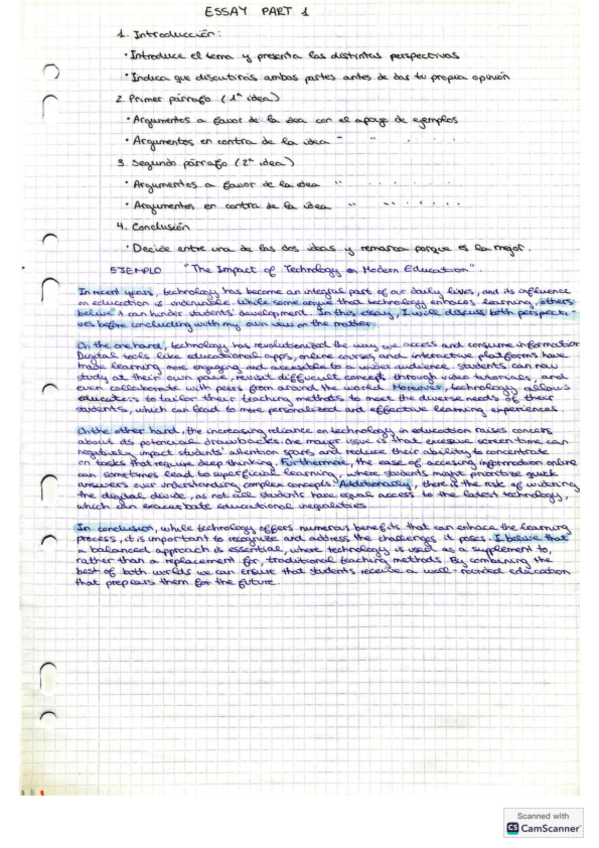 ESSAY PART 1
1. Introducción:
· Introduce el tema y presenta las distintas perspectivas
· Indica que discutirás ambas partes antes de das tu propia opinión
2. Primer párrafo (1ª idea)
· Argumentos a favor de la idea con el apoyo de ejemplos
· Argumentos en contra de la idea " " . . . .
3. Segundo párrafo (2ª idea)
· Argumentos a favor de la idea " . . . . . .
· Argumentos en contra de la idea " " . . . . .
4. Conclusión
· Decide entre una de las dos ideas y remarca porque es la mejor.
EJEMPLO "The Impact of Technology on Modern Education".
In recent years, technology has become an integral part of our daily lives, and its influence
on education is undeniable. While some argue that technology enhaces learning, others
believe it can hinder students' development. In this essay, I will discuss both perspecti-
ves before concluding with my own view on the matter.
On the one hand, technology has revolutionized the way we access and consume information
Digital tools like educational apps, online courses and interactive platforms have
made learning more engaging and accessible to a wider audience. Students can now
study at their own pace, revisit difficult concepts through video tutorials, and
even collaborate with peers from around the world. Moreover, technology allows
educators to tailor their teaching methods to meet the diverse needs of their
students, which can lead to more personalized and effective learning experiences.
On the other hand, the increasing reliance on technology in education raises concers
about its potencial drawbacks. One mayor issue is that excesive screen time can
negatively impact students' attention spans and reduce their ability to concentrate
on tasks that require deep thinking. Furthermore, the ease of accessing information online
can sometimes lead to superficial learning, where students might prioritize quick
answers over understanding complex concepts. Additionally, there is the risk of widening
the digital divide, as not all students have equal access to the latest technology,
which can exacerbate educational inequalities
In conclusion, while technology offers numerous benefits that can enhace the learning
process, it is important to recognize and address the challenges it poses. I belive that
a balanced approach is essential, where technology is used as a supplement to,
rather than a replacement for, traditional teaching methods. By combining the
best of both worlds we can ensure that students receive a well-rounded education
that prepares them for the future.
Scanned with
CS CamScanner